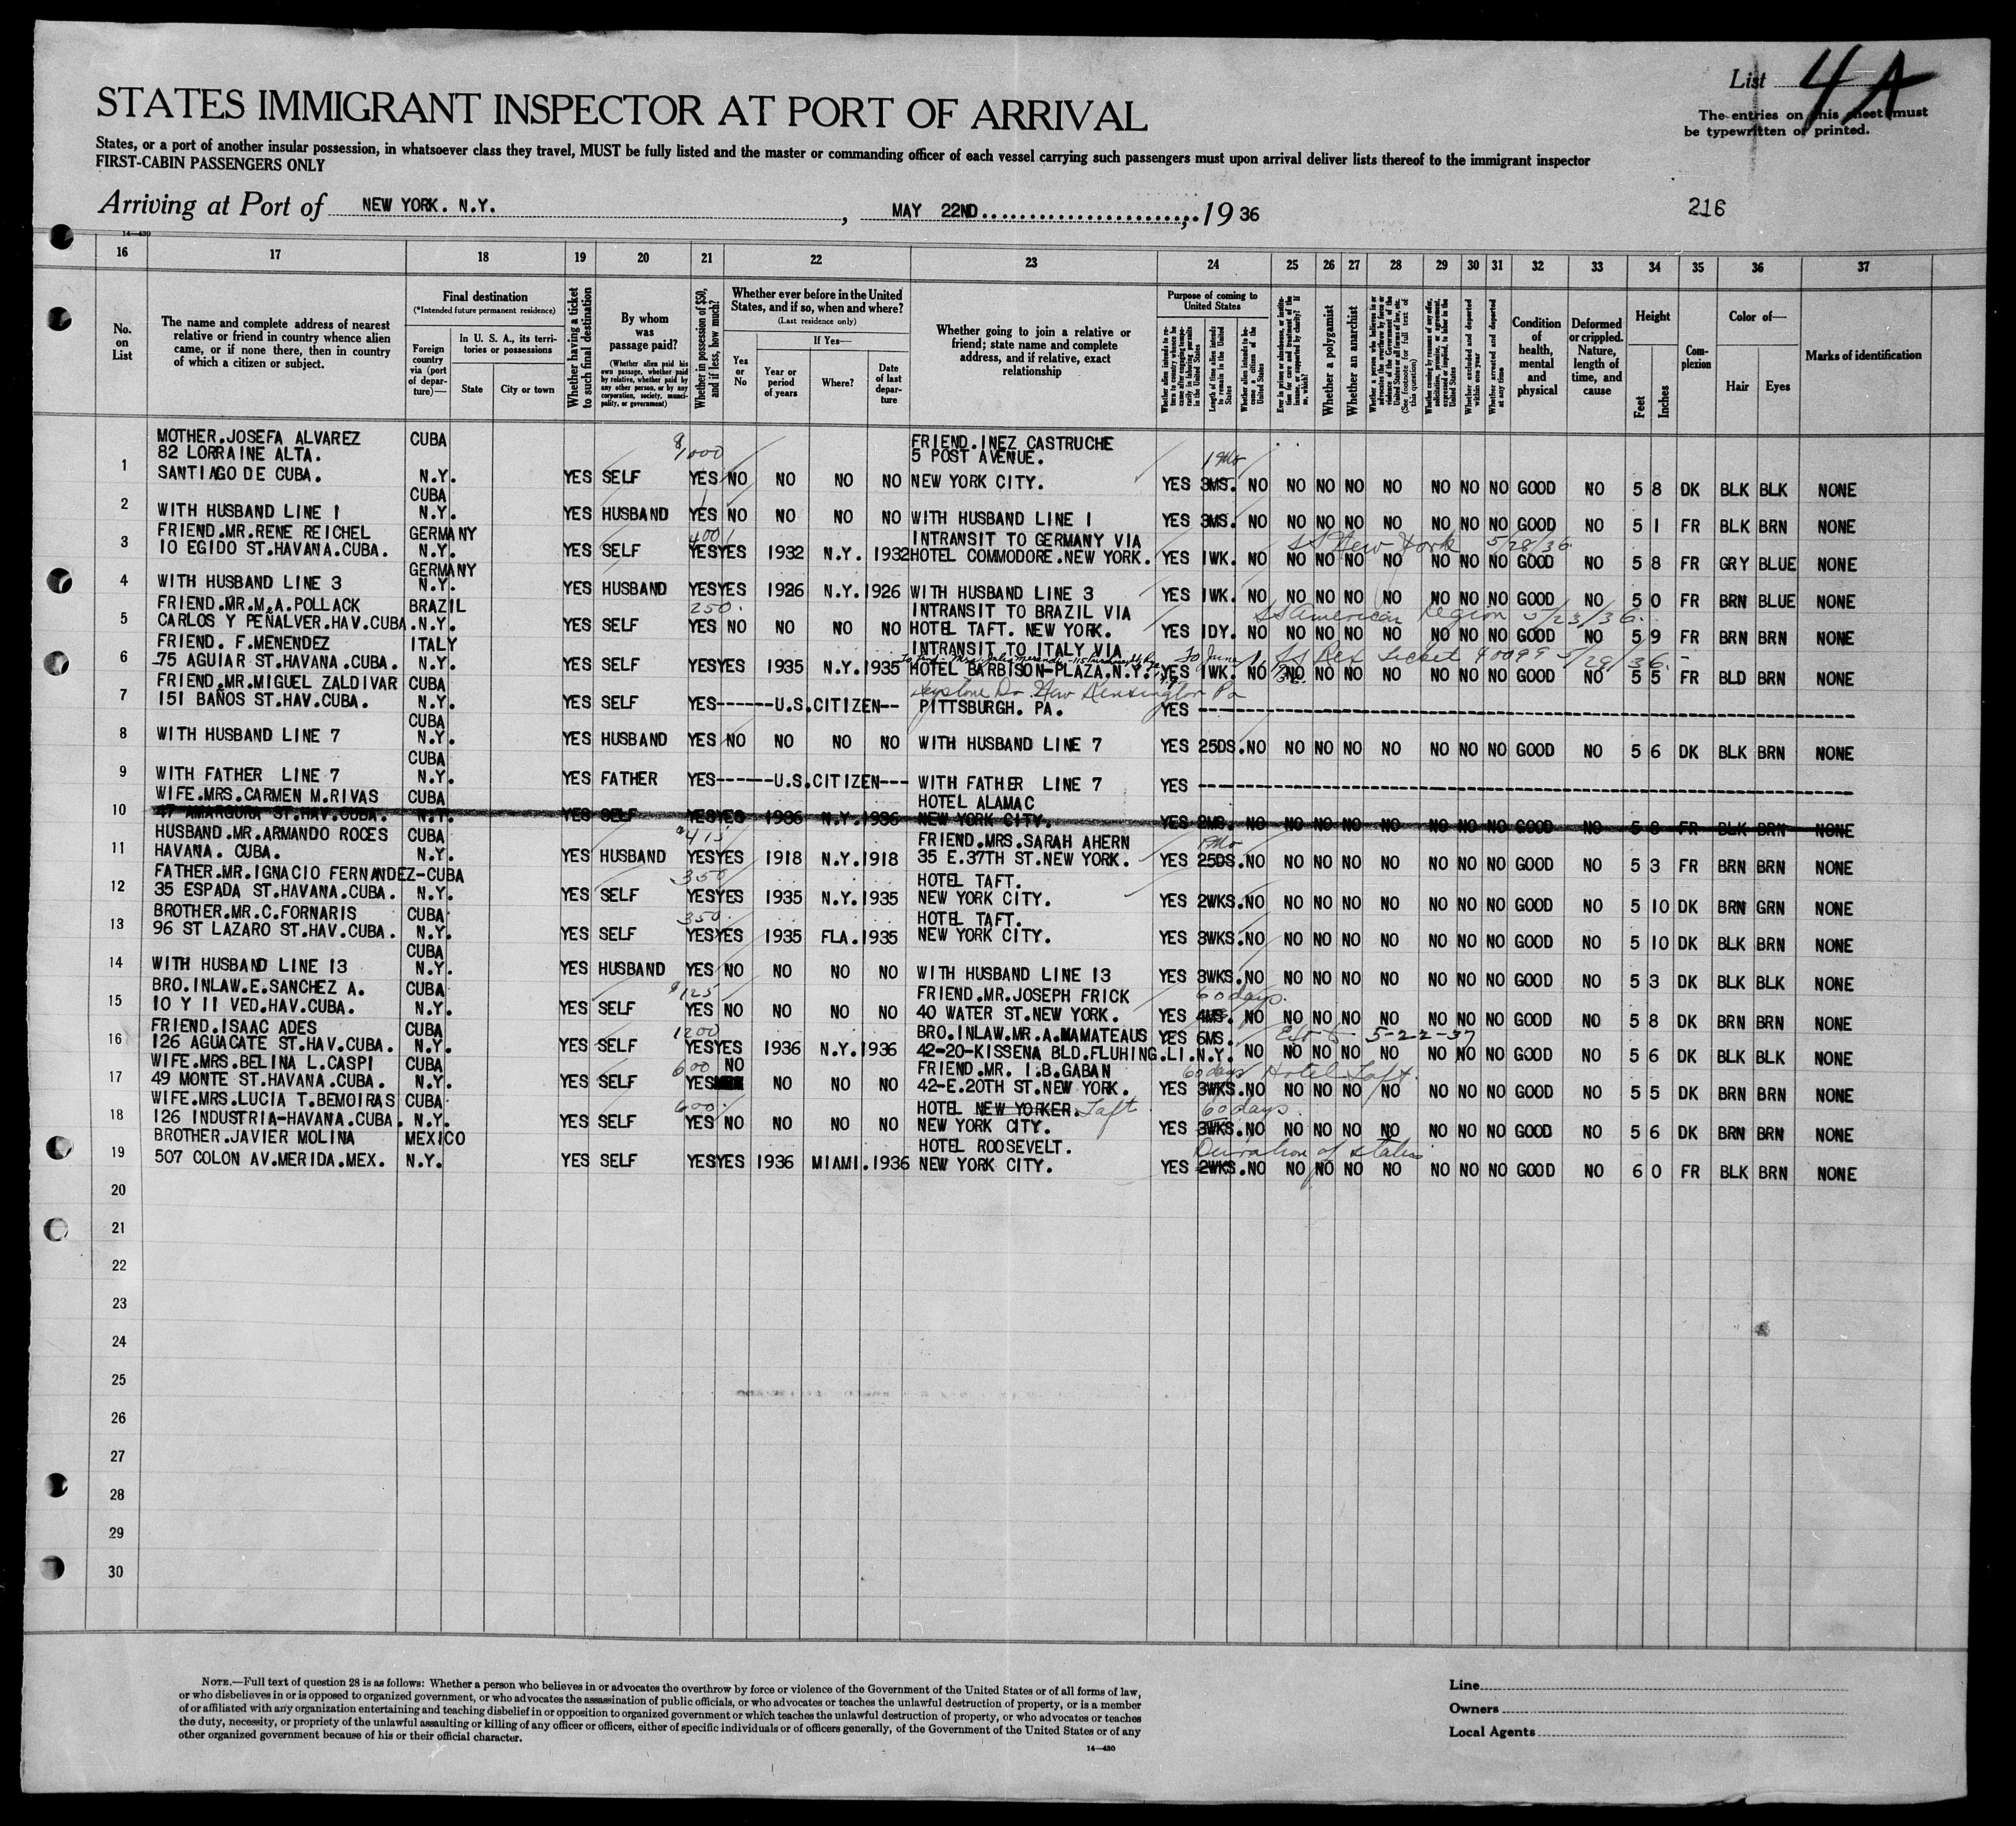 List 4A
STATES IMMIGRANT INSPECTOR AT PORT OF ARRIVAL
The entries on this sheet must
be typewritten or printed.
States, or a port of another insular possession, in whatsoever class they travel, MUST be fully listed and the master or commanding officer of each vessel carrying such passengers must upon arrival deliver lists thereof to the immigrant inspector
FIRST-CABIN PASSENGERS ONLY
Arriving at Port of NEW YORK. N.Y. , MAY 22ND , 19 36
216
14—430
16 17 18 19 20 21 22 23 24 25 26 27 28 29 30 31 32 33 34 35 36 37
No. on List
The name and complete address of nearest relative or friend in country whence alien came, or if none there, then in country of which a citizen or subject.
Final destination
(*Intended future permanent residence)
Foreign country via (port of departure)—
In U. S. A., its territories or possessions
State
City or town
Whether having a ticket to such final destination
By whom was passage paid?
(Whether alien paid his own passage, whether paid by relative, whether paid by any other person, or by any corporation, society, municipality, or government)
Whether in possession of $50, and if less, how much?
Whether ever before in the United States, and if so, when and where?
(Last residence only)
Yes or No
If Yes—
Year or period of years
Where?
Date of last departure
Whether going to join a relative or friend; state name and complete address, and if relative, exact relationship
Purpose of coming to United States
Whether alien intends to return to country whence he came after engaging temporarily in laboring pursuits in the United States
Length of time alien intends to remain in the United States
Whether alien intends to become a citizen of the United States
Ever in prison or almshouse, or institution for care and treatment of the insane, or supported by charity? If so, which?
Whether a polygamist
Whether an anarchist
Whether a person who believes in or advocates the overthrow by force or violence of the Government of the United States or all forms of law, etc. (See footnote for full text of this question)
Whether coming by reason of any offer, solicitation, promise, or agreement, expressed or implied, to labor in the United States
Whether excluded and deported within one year
Whether arrested and deported at any time
Condition of health, mental and physical
Deformed or crippled. Nature, length of time, and cause
Height
Feet
Inches
Complexion
Color of—
Hair
Eyes
Marks of identification
MOTHER.JOSEFA ALVAREZ CUBA FRIEND.INEZ CASTRUCHE
82 LORRAINE ALTA. $1000 5 POST AVENUE. 1 Mo
1 SANTIAGO DE CUBA. N.Y. YES SELF YES NO NO NO NO NEW YORK CITY. YES 3MS. NO NO NO NO NO NO NO NO GOOD NO 5 8 DK BLK BLK NONE
CUBA
2 WITH HUSBAND LINE 1 N.Y. YES HUSBAND YES NO NO NO NO WITH HUSBAND LINE 1 YES 3MS. NO NO NO NO NO NO NO NO GOOD NO 5 1 FR BLK BRN NONE
FRIEND.MR.RENE REICHEL GERMANY 400 INTRANSIT TO GERMANY VIA SS New York 5/28/36
3 10 EGIDO ST.HAVANA.CUBA. N.Y. YES SELF YES YES 1932 N.Y. 1932 HOTEL COMMODORE.NEW YORK. YES 1WK. NO NO NO NO NO NO NO NO GOOD NO 5 8 FR GRY BLUE NONE
GERMANY
4 WITH HUSBAND LINE 3 N.Y. YES HUSBAND YES YES 1926 N.Y. 1926 WITH HUSBAND LINE 3 YES 1WK. NO NO NO NO NO NO NO NO GOOD NO 5 0 FR BRN BLUE NONE
FRIEND.MR.M.A.POLLACK BRAZIL 250. INTRANSIT TO BRAZIL VIA SS American Legion 5/23/36.
5 CARLOS Y PEÑALVER.HAV.CUBA. N.Y. YES SELF YES NO NO NO NO HOTEL TAFT. NEW YORK. YES 1DY. NO NO NO NO NO NO NO NO GOOD NO 5 9 FR BRN BRN NONE
FRIEND. F.MENENDEZ ITALY INTRANSIT TO ITALY VIA To June 1, SS Rex Ticket 40099 5/29/36.
6 75 AGUIAR ST.HAVANA.CUBA. N.Y. YES SELF YES YES 1935 N.Y. 1935 HOTEL BARBISON-PLAZA.N.Y. YES 1WK. NO NO NO NO NO NO NO NO GOOD NO 5 5 FR BLD BRN NONE
FRIEND.MR.MIGUEL ZALDIVAR CUBA Keystone Dr. New Kensington Pa
7 151 BAÑOS ST.HAV.CUBA. N.Y. YES SELF YES------U.S.CITIZEN-- PITTSBURGH. PA. YES
CUBA
8 WITH HUSBAND LINE 7 N.Y. YES HUSBAND YES NO NO NO NO WITH HUSBAND LINE 7 YES 25DS. NO NO NO NO NO NO NO NO GOOD NO 5 6 DK BLK BRN NONE
CUBA
9 WITH FATHER LINE 7 N.Y. YES FATHER YES------U.S.CITIZEN--- WITH FATHER LINE 7 YES
WIFE.MRS.CARMEN M.RIVAS CUBA HOTEL ALAMAC
10 47 AMARGURA ST.HAV.CUBA. N.Y. YES SELF YES YES 1936 N.Y. 1936 NEW YORK CITY. YES 2MS. NO NO NO NO NO NO NO NO GOOD NO 5 8 FR BLK BRN NONE
HUSBAND.MR.ARMANDO ROCES CUBA $415 FRIEND.MRS.SARAH AHERN 1 Mo
11 HAVANA. CUBA. N.Y. YES HUSBAND YES YES 1918 N.Y. 1918 35 E.37TH ST.NEW YORK. YES 25DS. NO NO NO NO NO NO NO NO GOOD NO 5 3 FR BRN BRN NONE
FATHER.MR.IGNACIO FERNANDEZ-CUBA 350 HOTEL TAFT.
12 35 ESPADA ST.HAVANA.CUBA. N.Y. YES SELF YES YES 1935 N.Y. 1935 NEW YORK CITY. YES 2WKS. NO NO NO NO NO NO NO NO GOOD NO 5 10 DK BRN GRN NONE
BROTHER.MR.C.FORNARIS CUBA 350. HOTEL TAFT.
13 96 ST LAZARO ST.HAV.CUBA. N.Y. YES SELF YES YES 1935 FLA. 1935 NEW YORK CITY. YES 3WKS. NO NO NO NO NO NO NO NO GOOD NO 5 10 DK BLK BRN NONE
CUBA
14 WITH HUSBAND LINE 13 N.Y. YES HUSBAND YES NO NO NO NO WITH HUSBAND LINE 13 YES 3WKS. NO NO NO NO NO NO NO NO GOOD NO 5 3 DK BLK BLK NONE
BRO.INLAW.E.SANCHEZ A. CUBA $125 FRIEND.MR.JOSEPH FRICK 60 days.
15 10 Y 11 VED.HAV.CUBA. N.Y. YES SELF YES NO NO NO NO 40 WATER ST.NEW YORK. YES 4MS. NO NO NO NO NO NO NO NO GOOD NO 5 8 DK BRN BRN NONE
FRIEND.ISAAC ADES CUBA 1200 BRO.INLAW.MR.A.MAMATEAUS YES 6MS. 5-22-37
16 126 AGUACATE ST.HAV.CUBA. N.Y. YES SELF YES YES 1936 N.Y. 1936 42-20-KISSENA BLD.FLUHING.LI.N.Y. NO NO NO NO NO NO NO NO GOOD NO 5 6 DK BLK BLK NONE
WIFE.MRS.BELINA L.CASPI CUBA 600 NO FRIEND.MR. I.B.GABAN 60 days Hotel Taft.
17 49 MONTE ST.HAVANA.CUBA. N.Y. YES SELF YES NO NO NO 42-E.20TH ST.NEW YORK. YES 3WKS. NO NO NO NO NO NO NO NO GOOD NO 5 5 DK BRN BRN NONE
WIFE.MRS.LUCIA T.BEMOIRAS CUBA 600. HOTEL NEW YORKER. Taft 60 days.
18 126 INDUSTRIA-HAVANA.CUBA. N.Y. YES SELF YES NO NO NO NO NEW YORK CITY. YES 3WKS. NO NO NO NO NO NO NO NO GOOD NO 5 6 DK BRN BRN NONE
BROTHER.JAVIER MOLINA MEXICO HOTEL ROOSEVELT. Duration of status
19 507 COLON AV.MERIDA.MEX. N.Y. YES SELF YES YES 1936 MIAMI. 1936 NEW YORK CITY. YES 2WKS. NO NO NO NO NO NO NO NO GOOD NO 6 0 FR BLK BRN NONE
20
21
22
23
24
25
26
27
28
29
30
NOTE.—Full text of question 28 is as follows: Whether a person who believes in or advocates the overthrow by force or violence of the Government of the United States or of all forms of law,
or who disbelieves in or is opposed to organized government, or who advocates the assassination of public officials, or who advocates or teaches the unlawful destruction of property, or is a member
of or affiliated with any organization entertaining and teaching disbelief in or opposition to organized government or which teaches the unlawful destruction of property, or who advocates or teaches
the duty, necessity, or propriety of the unlawful assaulting or killing of any officer or officers, either of specific individuals or of officers generally, of the Government of the United States or of any
other organized government because of his or their official character.
14—430
Line
Owners
Local Agents